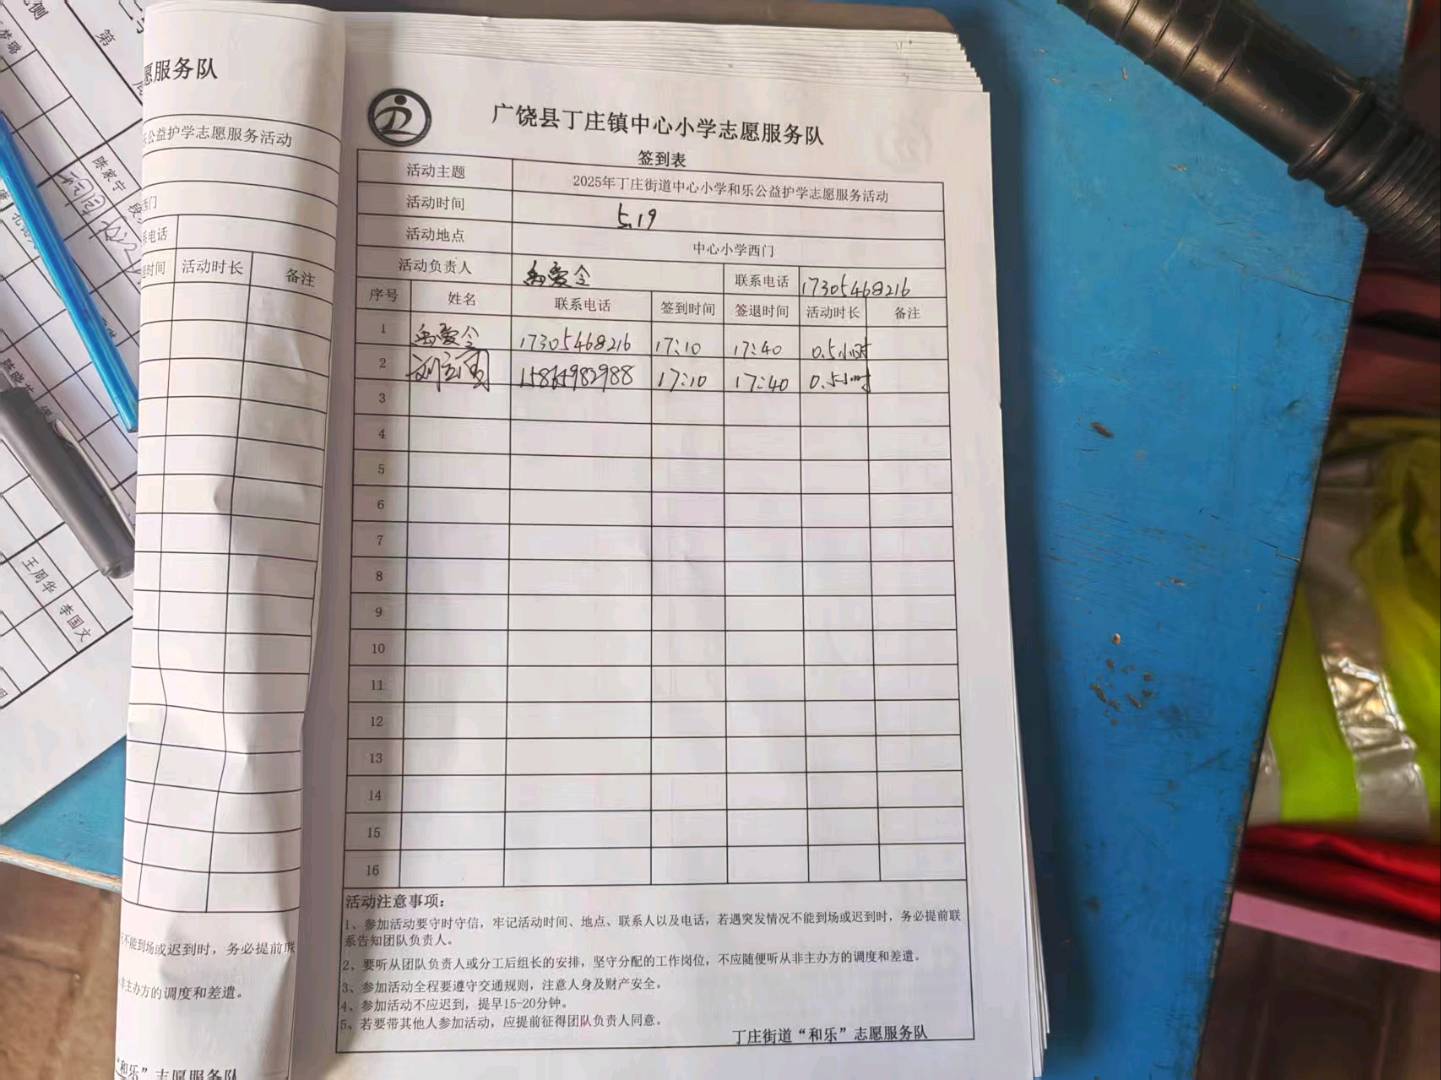 第
梦璐
愿服务队
公益护学志愿服务活动
陈家宁
西门
系电话
时间 活动时长 备注
王周华
李国文
不能到场或迟到时，务必提前联
非主办方的调度和差遣。
“和乐”志愿服务队
广饶县丁庄镇中心小学志愿服务队
签到表
活动主题 2025年丁庄街道中心小学和乐公益护学志愿服务活动
活动时间 5.19
活动地点 中心小学西门
活动负责人 联系电话 17305468216
序号 姓名 联系电话 签到时间 签退时间 活动时长 备注
1 17305468216 17:10 17:40 0.5小时
2 17:10 17:40 0.5小时
3
4
5
6
7
8
9
10
11
12
13
14
15
16
活动注意事项：
1、参加活动要守时守信，牢记活动时间、地点、联系人以及电话，若遇突发情况不能到场或迟到时，务必提前联
系告知团队负责人。
2、要听从团队负责人或分工后组长的安排，坚守分配的工作岗位，不应随便听从非主办方的调度和差遣。
3、参加活动全程要遵守交通规则，注意人身及财产安全。
4、参加活动不应迟到，提早15-20分钟。
5、若要带其他人参加活动，应提前征得团队负责人同意。
丁庄街道“和乐”志愿服务队